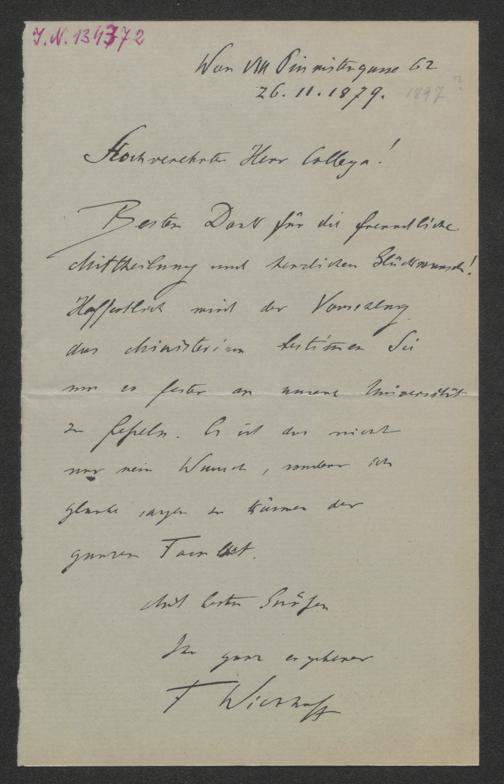 I.N. 134372
Wien VIII Piaristengasse 62
26.11.1879. 1897?
Hochverehrter Herr Collega!
Besten Dank für die freundliche
Mittheilung und herzlichen Glückwunsch!
Hoffentlich wird der Vorschlag
das Ministerium bestimmen Sie
um so fester an unsere Universität
zu fesseln. Es ist das nicht
nur mein Wunsch, sondern ich
glaube sagen zu können der
ganzen Facultät.
Mit besten Grüßen
Ihr ganz ergebener
F Wickhoff